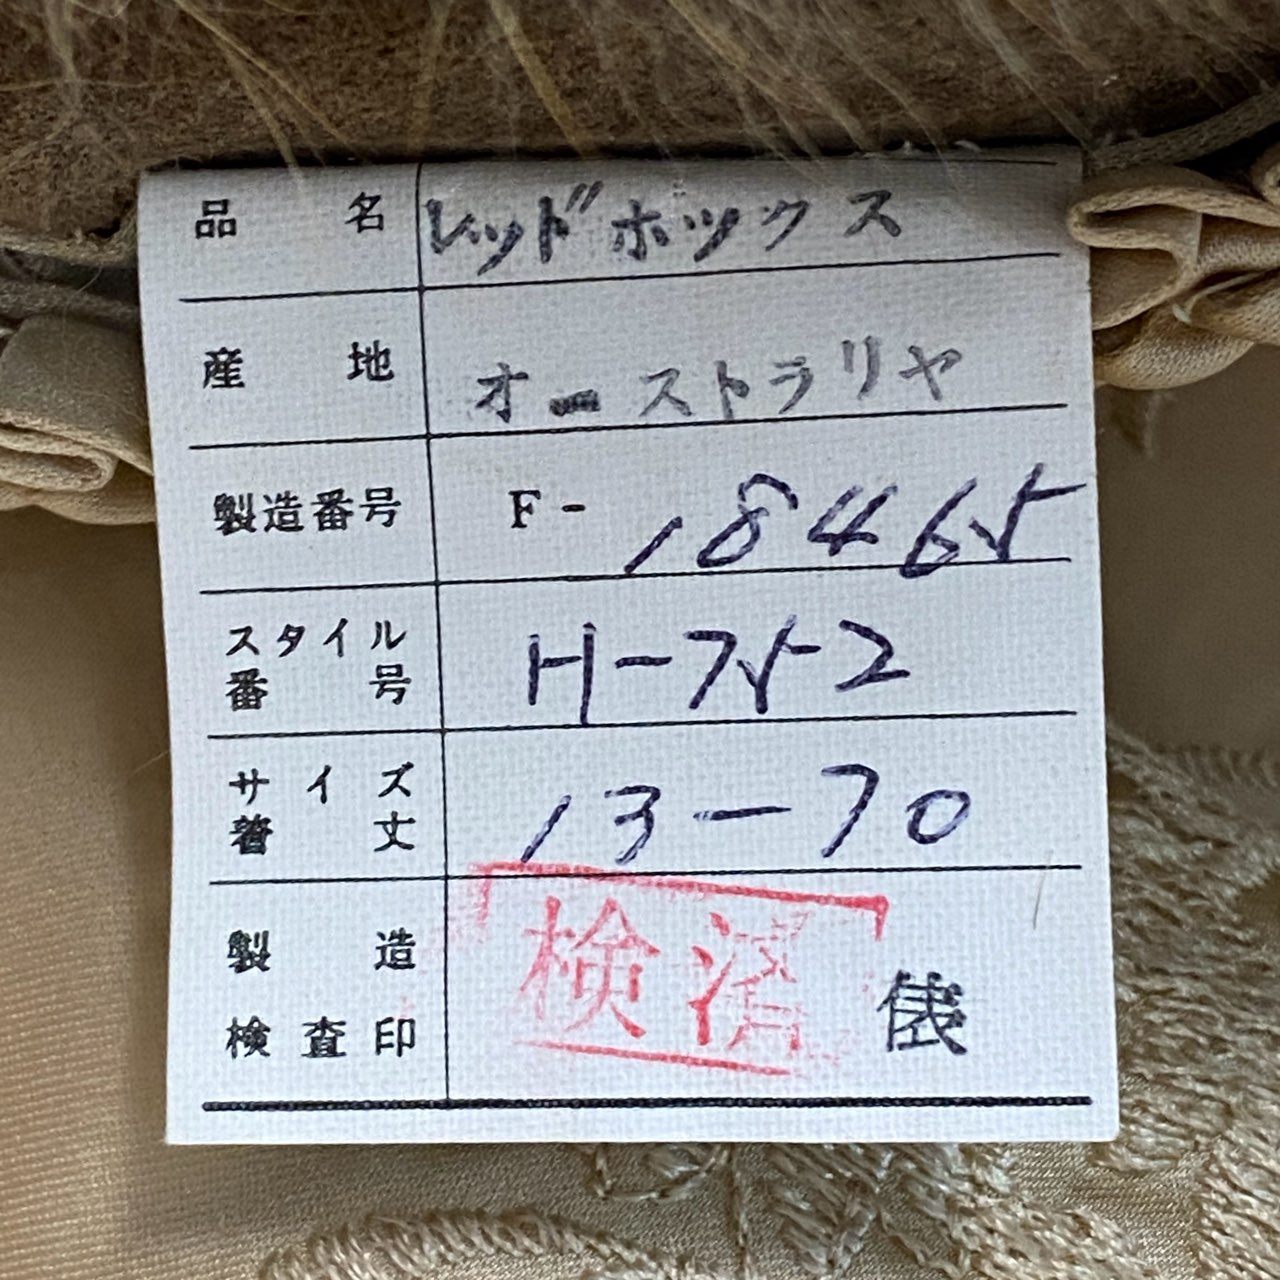 品名 レッドホックス
産地 オーストラリヤ
製造番号 F-18465
スタイル番号 H-752
サイズ着丈 13-70
製造検査印 検済 俵